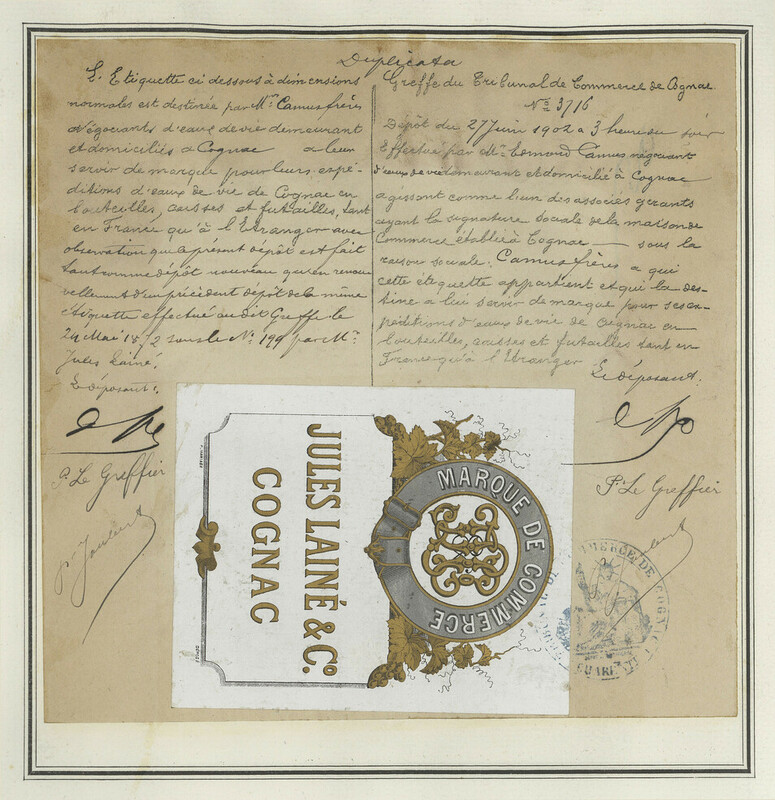 Duplicata
L'Etiquette ci dessous à dimensions
normales est destinée par Mrs Camus frères
négociants d'eaux de vie demeurant
et domiciliés à Cognac à leur
servir de marque pour leurs expé-
ditions d'eaux de vie de Cognac en
bouteilles, caisses et futailles, tant
en France qu'à l'Etranger avec
observation que le présent dépôt est fait
tant comme dépôt nouveau qu'en renou-
vellement d'un précédent dépôt de la même
étiquette effectué au dit Greffe le
24 Mai 1872 sous le No 199 par Mr
Jules Lainé.
Le déposant.
P. Le Greffier
Greffe du Tribunal de Commerce de Cognac
No 3716
Dépôt du 27 Juin 1902 à 3 heures du soir
Effectué par Mr Edmond Camus négociant
d'eaux de vie demeurant et domicilié à Cognac
agissant comme l'un des associés gérants
ayant la signature sociale de la maison de
Commerce établie à Cognac sous la
raison sociale. Camus frères à qui
cette étiquette appartient et qui la des-
tine à lui servir de marque pour ses ex-
péditions d'eaux de vie de Cognac en
bouteilles, caisses et futailles tant en
France qu'à l'Etranger
Le déposant.
P. Le Greffier
MARQUE DE COMMERCE
JULES LAINÉ & Co.
COGNAC